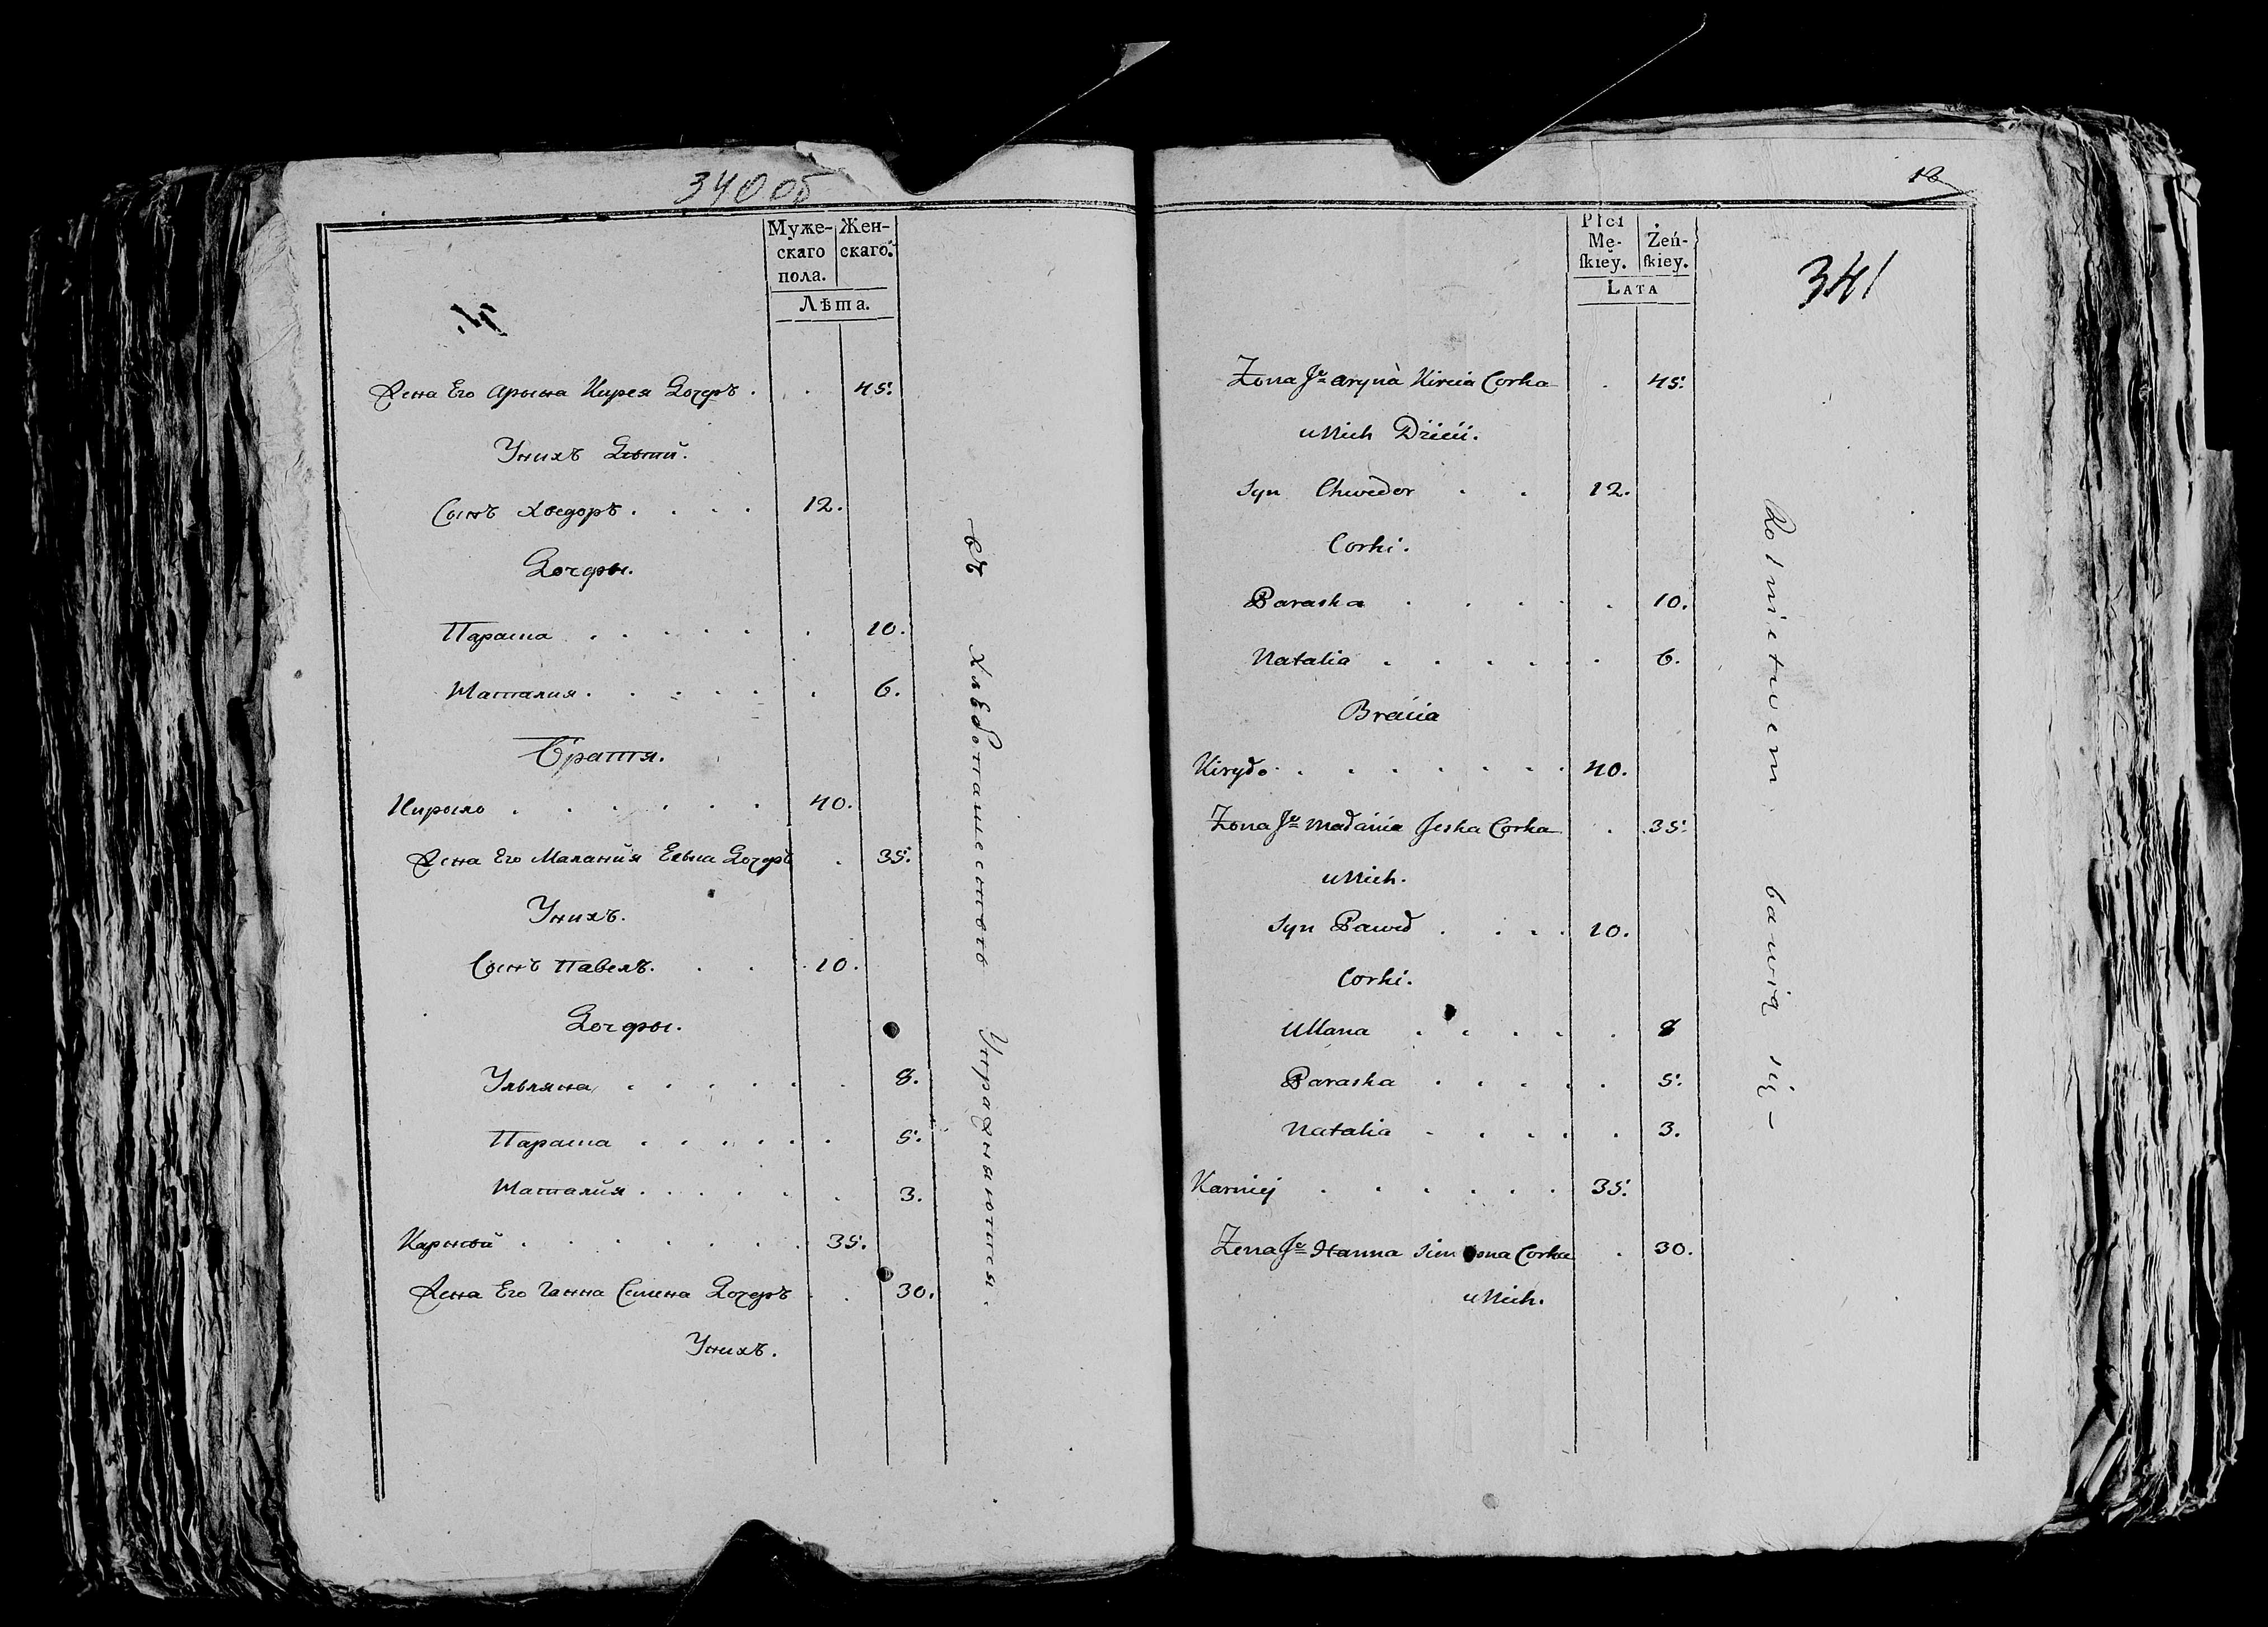 340 об
Муже-
скаго
пола.
Жен-
скаго.
Лѣта.
Жена Его Арына Кирея Дочеръ . . 45.
Унихъ Дѣтй.
Сынъ Хведоръ . . . . 12.
Дочеры.
Параша . . . . . . 10.
Наталия . . . . . . 6.
Братя.
Кирыло . . . . . . 40.
Жена Его Маланйя Еська Дочеръ . 35.
Унихъ.
Сынъ Павелъ. . . . 10.
Дочеры.
Ульляна . . . . . . 8.
Параша . . . . . . 5.
Наталйя . . . . . . 3.
Карнѣй . . . . . . . 35.
Жена Его Ганна Семена Дочеръ . . 30.
Унихъ.
въ Хлѣбопашествѣ Упражняются.
12
341
Płci
Mę-
ſkiey.
Żeń-
ſkiey.
LATA
Zona Je Aryna Kireia Corka . 45.
u Nich Dzieci.
Syn Chwedor . . 12.
Corki.
Paraska . . . . . 10.
Natalia . . . . . . 6.
Bracia
Kiryło . . . . . . . 40.
Zona Je Małania Jeska Corka . 35.
u Nich.
Syn Paweł . . . . 10.
Corki.
Ullana . . . . . 8
Paraska . . . . . 5.
Natalia . . . . . 3.
Karniej . . . . . . 35.
Zona Je Hanna Siemiona Corka . 30.
u Nich.
Rolnictwem bawią się –